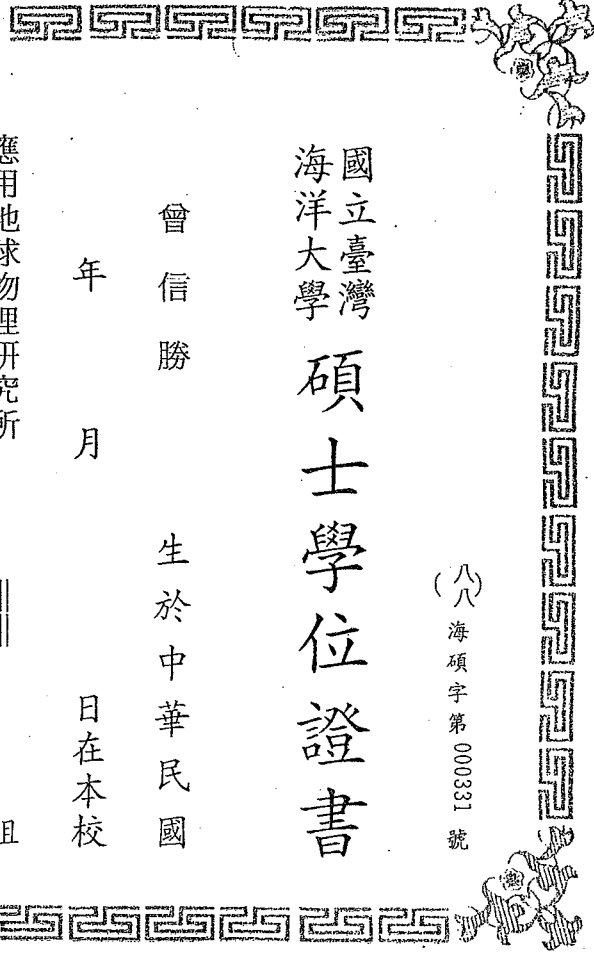 (八八)海碩字第000331號
國立臺灣
海洋大學
碩士學位證書
曾信勝 生於中華民國
年 月 日在本校
應用地球物理研究所 組